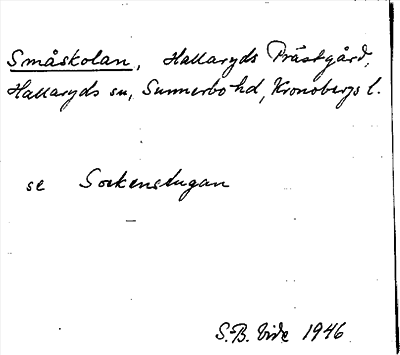 Småskolan, Hallaryds Prästgård,
Hallaryds sn, Sunnerbo hd, Kronobergs l.
se Sockenstugan
S.-B. Vide 1946